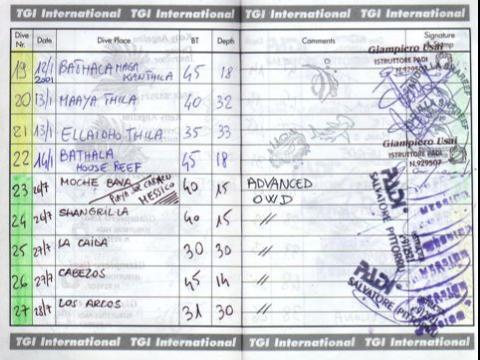 TGI International TGI International TGI International TGI International
Dive Nr. Date Dive Place BT Depth Comments Signature
19 12/1 2001 BATHALA MAGA KANTHILA 45 18
20 13/1 MAAYA THILA 40 32
21 13/1 ELLAIDHO THILA 35 33
22 14/1 BATHALA HOUSE REEF 45 18
23 26/7 MOCHE BAVA PLAYA DEL CARMEN MESSICO 40 15 ADVANCED OWD
24 26/7 SHANGRILLA 40 15 //
25 27/7 LA CAIDA 30 30 //
26 27/7 CABEZOS 45 14 //
27 28/7 LOS ARCOS 31 30 //
Giampiero Usai
ISTRUTTORE PADI
Giampiero Usai
ISTRUTTORE PADI
N.929507
PADI
SALVATORE PITTORRU
PADI
SALVATORE PITTORRU
TGI International TGI International TGI International TGI International